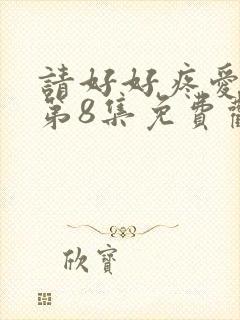 請好好疼愛
第8集免費
欣寶